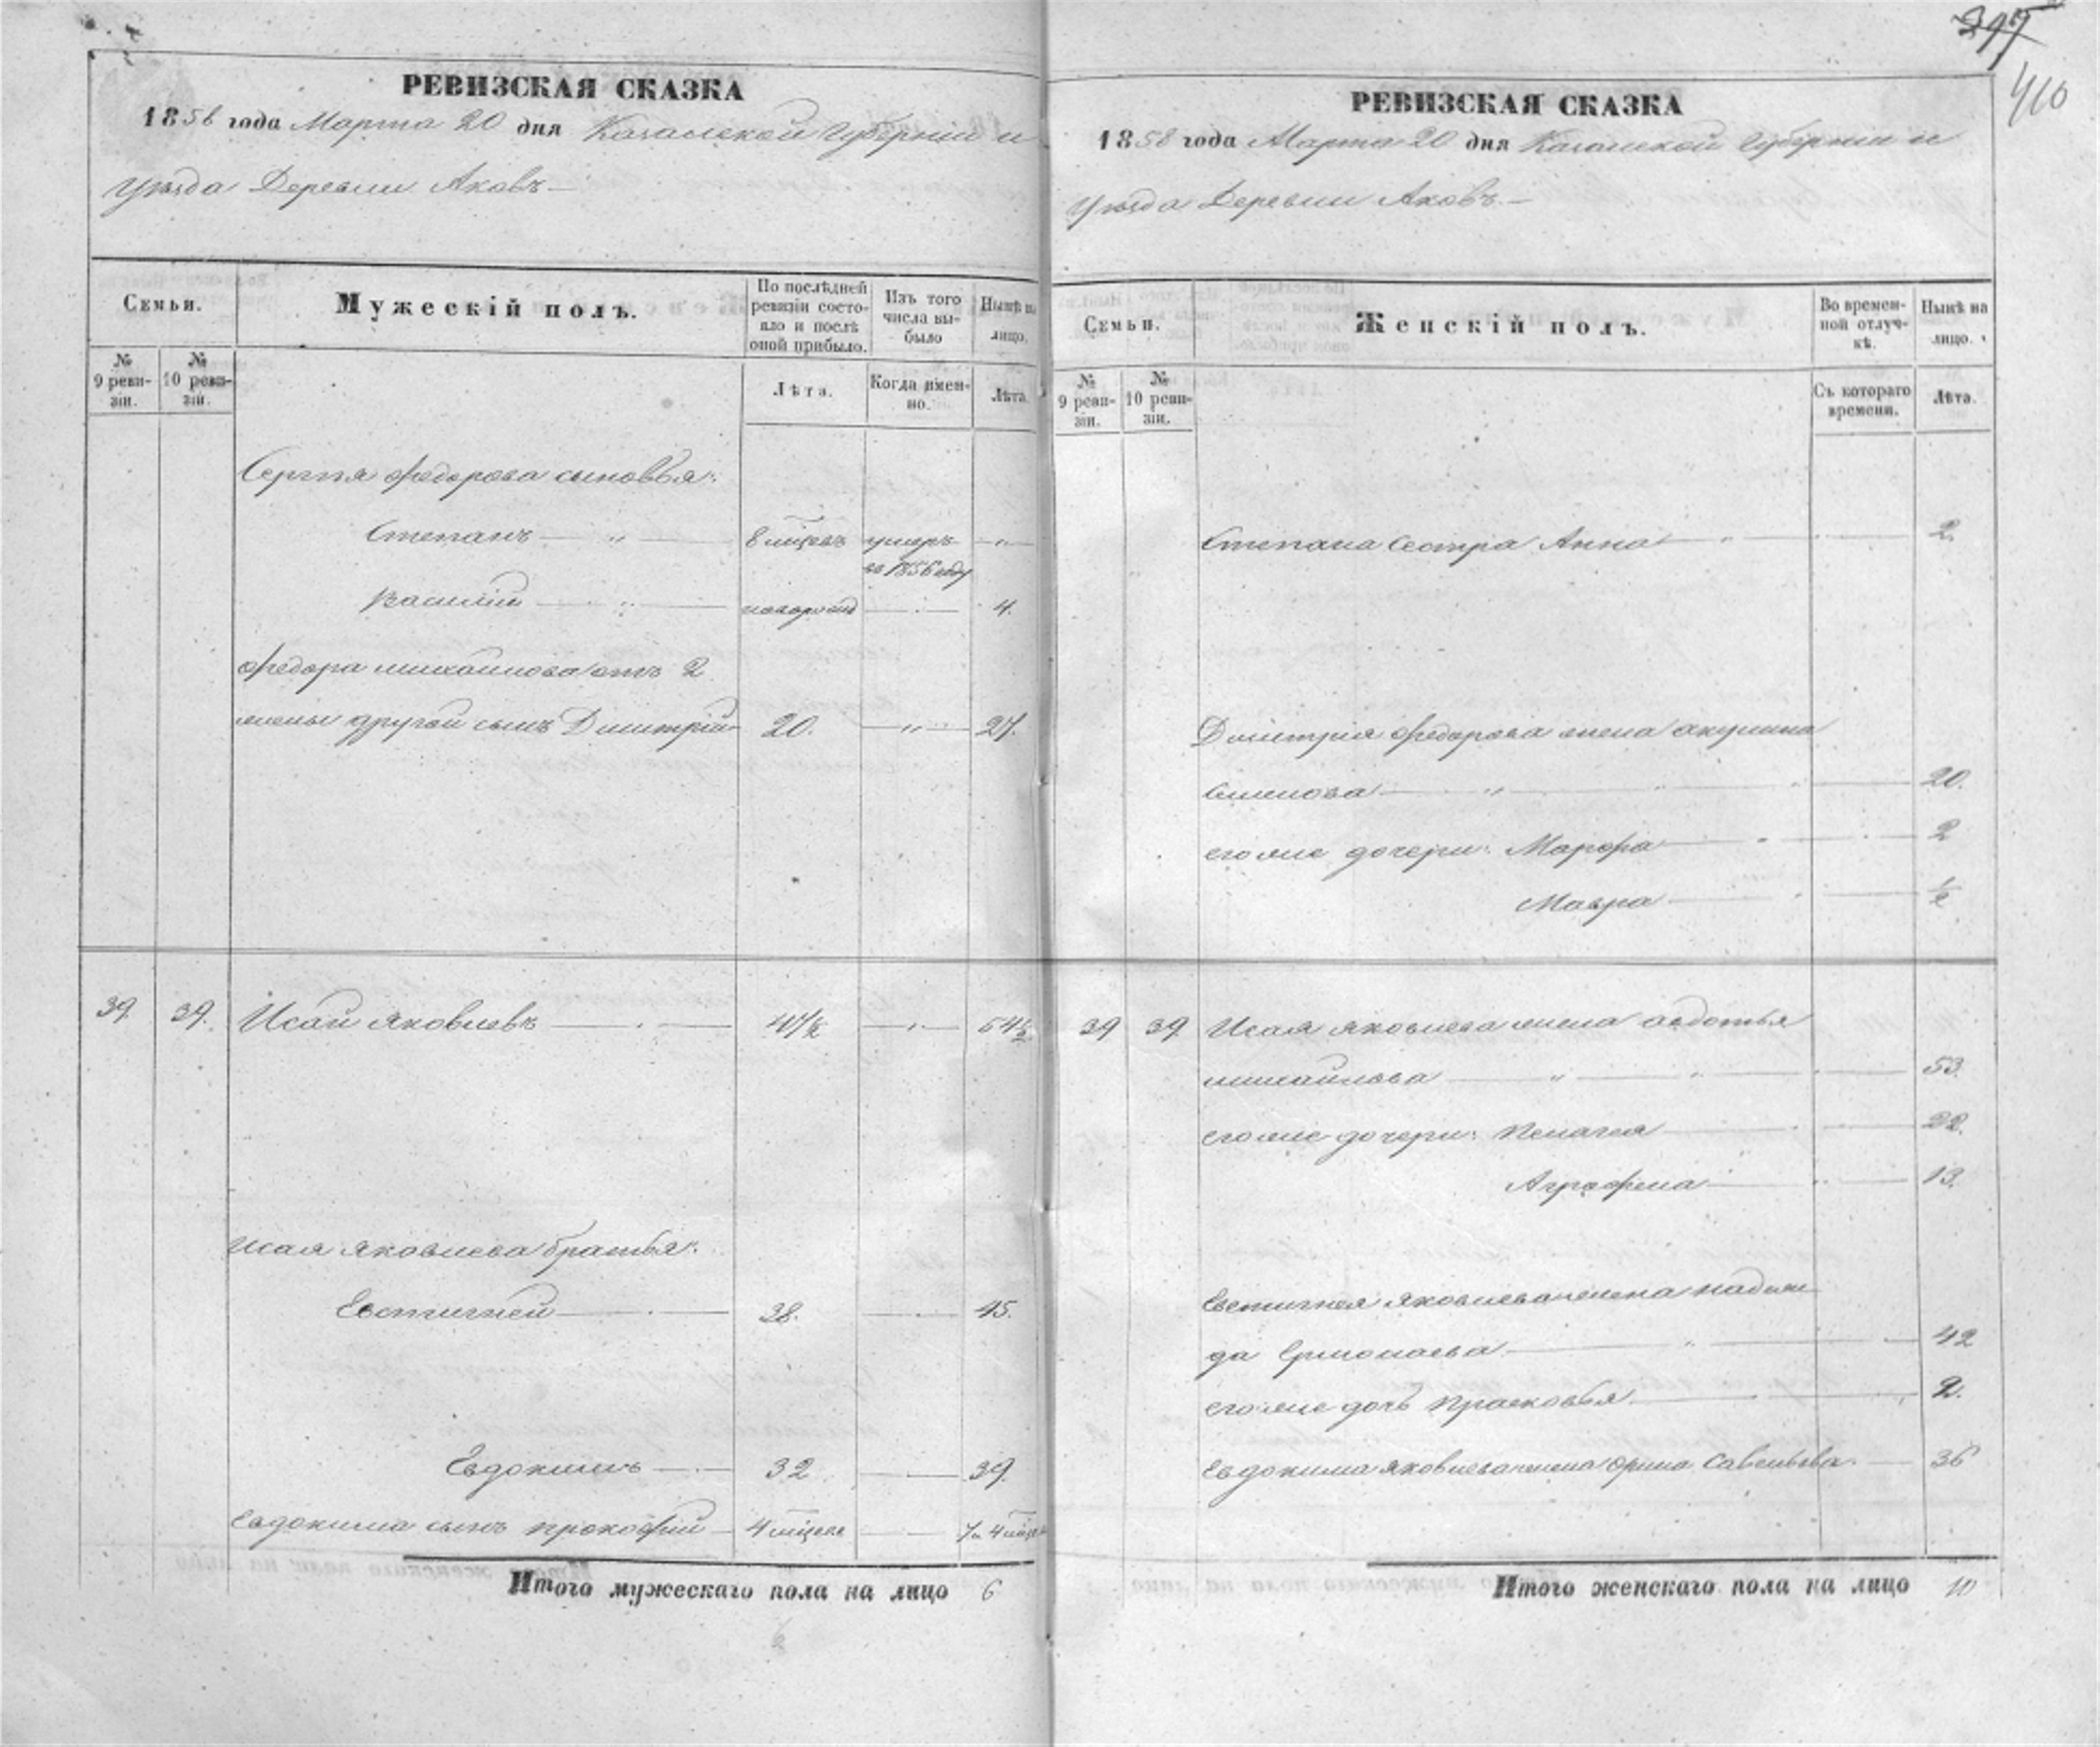 397
410
РЕВИЗСКАЯ СКАЗКА
1858 года Марта 20 дня Казанской Губерніи и
Уѣзда Деревни Аковъ
Семьи.
Мужескій полъ.
По послѣдней ревизіи состояло и послѣ оной прибыло.
Изъ того числа выбыло
Нынѣ на лицо.
№ 9 ревизіи.
№ 10 ревизіи.
Лѣта.
Когда именно.
Лѣта.
Сергѣя Федорова сыновья:
Степанъ — " — 8 мѣсецъ умеръ — " —
въ 1856 году
Василій — " — новорожд — 4.
Федора Михайлова отъ 2
жены другой сынъ Дмитрій 20. — " — 27.
39. 39. Исай Яковлевъ — 47½ — " — 54½
Исая Яковлева братья:
Евстигней — 38. — 45.
Евдокимъ — 32 — 39.
Евдокима сынъ Прокофій — 4 мѣсеца — 7 и 4 мѣсец
Итого мужескаго пола на лицо 6
РЕВИЗСКАЯ СКАЗКА
1858 года Марта 20 дня Казанской Губерніи и
Уѣзда Деревни Аковъ. —
Семьи.
Женскій полъ.
Во временной отлучкѣ.
Нынѣ на лицо.
№ 9 ревизіи.
№ 10 ревизіи.
Съ котораго времени.
Лѣта.
Степана сестра Анна — 2.
Дмитрія Федорова жена Акулина
Семенова — " — 20.
его же дочери: Марфа — 2
Мавра — ½
39 39 Исая Яковлева жена Авдотья
Михайлова — " — 53.
его же дочери: Пелагея — 22.
Аграфена — 13.
Евстигнея Яковлева жена Надеж
да Ермолаева — " — 42
его же дочь Прасковья — 2.
Евдокима Яковлева жена Орина Савельева — 36
Итого женскаго пола на лицо 10